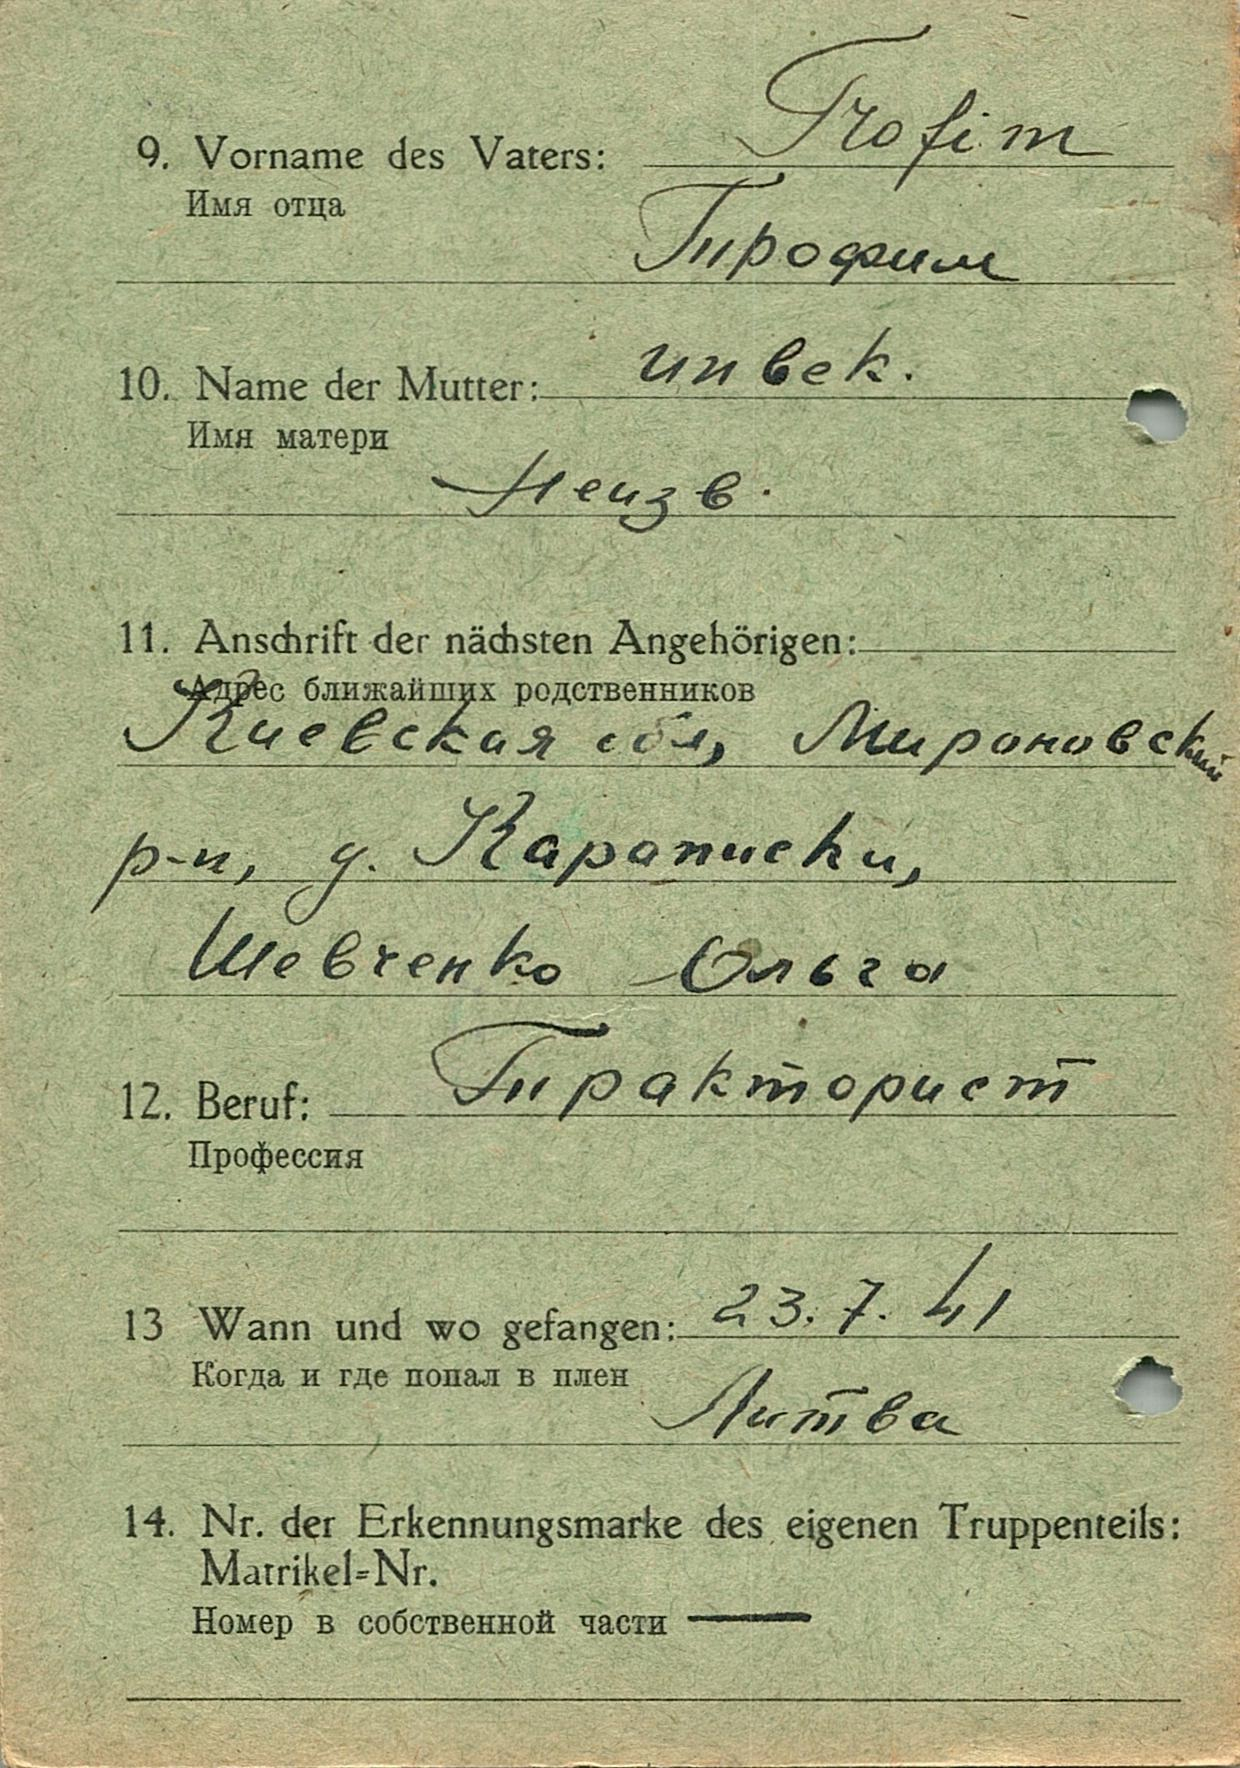 9. Vorname des Vaters: Trofim
Имя отца
Трофим
10. Name der Mutter: unbek.
Имя матери
Неизв.
11. Anschrift der nächsten Angehörigen:
Адрес ближайших родственников
Киевская обл, Мироновский
р-н, д. Караписки,
Шевченко Ольга
12. Beruf: Тракторист
Профессия
13 Wann und wo gefangen: 23. 7. 41
Когда и где попал в плен
Литва
14. Nr. der Erkennungsmarke des eigenen Truppenteils:
Matrikel-Nr.
Номер в собственной части —